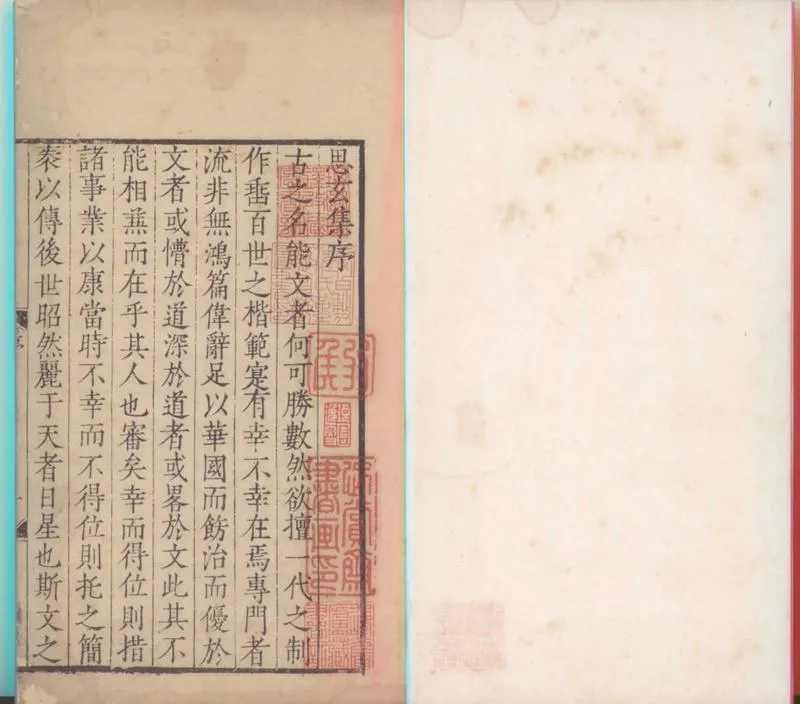 思玄集序
古之名能文者何可勝數然欲擅一代之制
作垂百世之楷範寔有幸不幸在焉專門者
流非無鴻篇偉辭足以華國而飭治而優於
文者或懵於道深於道者或畧於文此其不
能相兼而在乎其人也審矣幸而得位則措
諸事業以康當時不幸而不得位則托之簡
袠以傳後世昭然麗于天者日星也斯文之
序